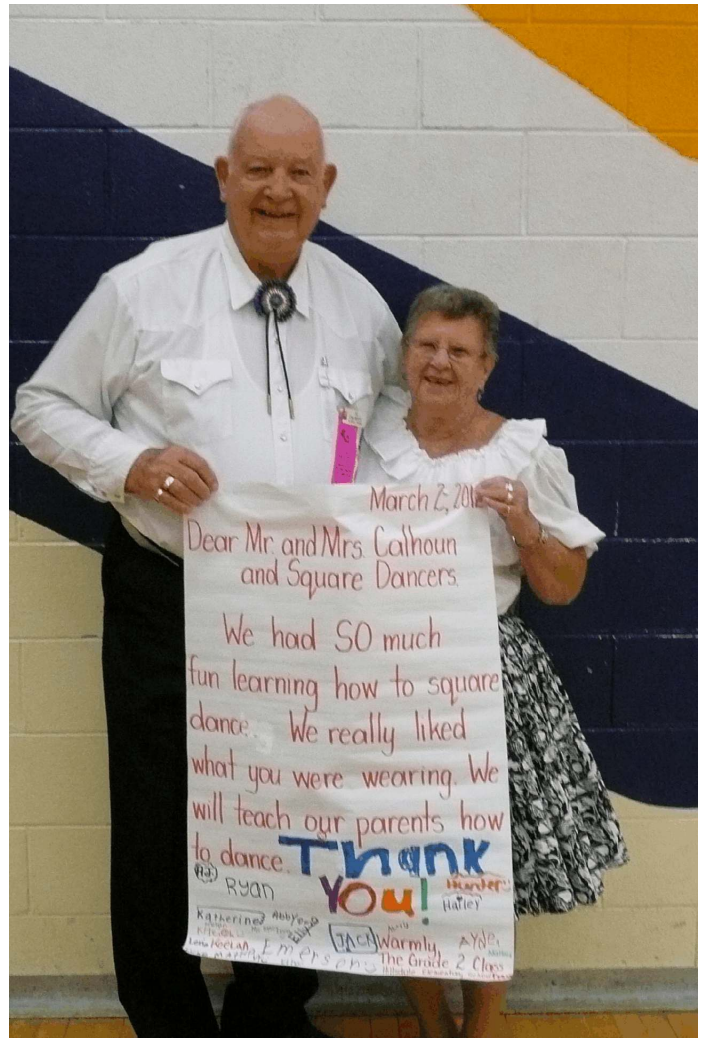 March 2, 201
Dear Mr. and Mrs. Calhoun
and Square Dancers.
We had SO much
fun learning how to square
dance. We really liked
what you were wearing. We
will teach our parents how
to dance. Thank
You!
AJ
Ryan
Hunter
Hailey
Katherine
Abby
JACK
Warmly,
The Grade 2 Class
Keelan
Emerson